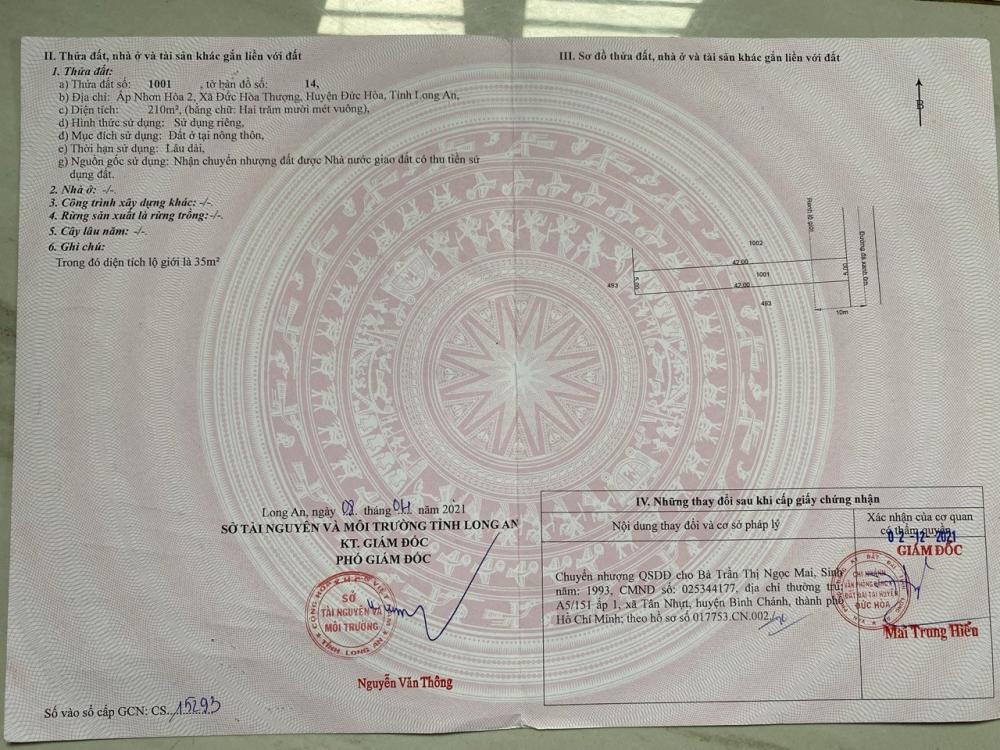 II. Thửa đất, nhà ở và tài sản khác gắn liền với đất
1. Thửa đất:
a) Thửa đất số: 1001 , tờ bản đồ số: 14,
b) Địa chỉ: Ấp Nhơn Hòa 2, Xã Đức Hòa Thượng, Huyện Đức Hòa, Tỉnh Long An,
c) Diện tích: 210m², (bằng chữ: Hai trăm mười mét vuông),
d) Hình thức sử dụng: Sử dụng riêng,
đ) Mục đích sử dụng: Đất ở tại nông thôn,
e) Thời hạn sử dụng: Lâu dài,
g) Nguồn gốc sử dụng: Nhận chuyển nhượng đất được Nhà nước giao đất có thu tiền sử
dụng đất.
2. Nhà ở: -/-.
3. Công trình xây dựng khác: -/-.
4. Rừng sản xuất là rừng trồng: -/-.
5. Cây lâu năm: -/-.
6. Ghi chú:
Trong đó diện tích lộ giới là 35m²
Long An, ngày 08 tháng 04 năm 2021
SỞ TÀI NGUYÊN VÀ MÔI TRƯỜNG TỈNH LONG AN
KT. GIÁM ĐỐC
PHÓ GIÁM ĐỐC
SỞ
TÀI NGUYÊN VÀ
MÔI TRƯỜNG
TỈNH LONG AN
Nguyễn Văn Thông
Số vào sổ cấp GCN: CS 15293
III. Sơ đồ thửa đất, nhà ở và tài sản khác gắn liền với đất
B
Ranh lộ giới
Đường đá xanh 0m
1002
42.00
1001
493
5.00
5.00
42.00
493
10m
IV. Những thay đổi sau khi cấp giấy chứng nhận
Nội dung thay đổi và cơ sở pháp lý
Xác nhận của cơ quan
có thẩm quyền
02-12-2021
GIÁM ĐỐC
Chuyển nhượng QSDĐ cho Bà Trần Thị Ngọc Mai, Sinh
năm: 1993, CMND số: 025344177, địa chỉ thường trú:
A5/151 ấp 1, xã Tân Nhựt, huyện Bình Chánh, thành phố
Hồ Chí Minh; theo hồ sơ số 017753.CN.002
CHI NHÁNH
VĂN PHÒNG ĐĂNG KÝ
ĐẤT ĐAI TẠI HUYỆN
ĐỨC HÒA
Mai Trung Hiếu